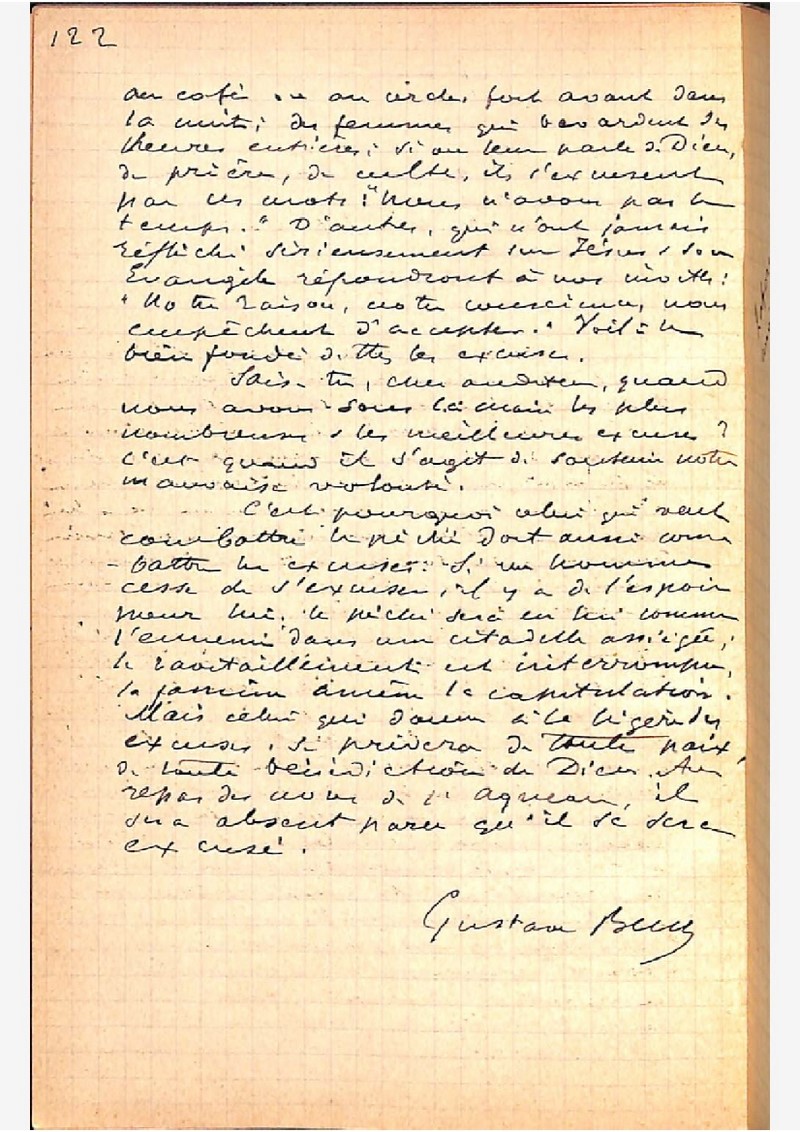 122
au café ou au cercle, fort avant dans
la nuit; des femmes qui bavardent des
heures entières; si on leur parle de Dieu,
de prière, de culte, ils s'excusent
par ces mots: "Nous n'avons pas le
temps." D'autres, qui n'ont jamais
réfléchi sérieusement sur Jésus & son
Evangile répondront à nos invites:
"Notre raison, notre conscience, nous
empêchent d'accepter." Voilà le
bien fondé de ttes les excuses.
Sais-tu, cher auditeur, quand
nous avons sous la main les plus
nombreuses & les meilleures excuses?
C'est quand il s'agit de soutenir notre
mauvaise volonté.
C'est pourquoi celui qui veut
combattre le péché doit aussi com
-battre les excuses. Si un homme
cesse de s'excuser, il y a de l'espoir
pour lui; le péché sera en lui comme
l'ennemi dans une citadelle assiégée;
le ravitaillement est interrompu,
la famine amène la capitulation.
Mais celui qui donne à la légère des
excuses, se privera de toute paix,
de toute bénédiction de Dieu. Au
repas des noces de l'Agneau, il
sera absent parce qu'il se sera
excusé.
Gustave